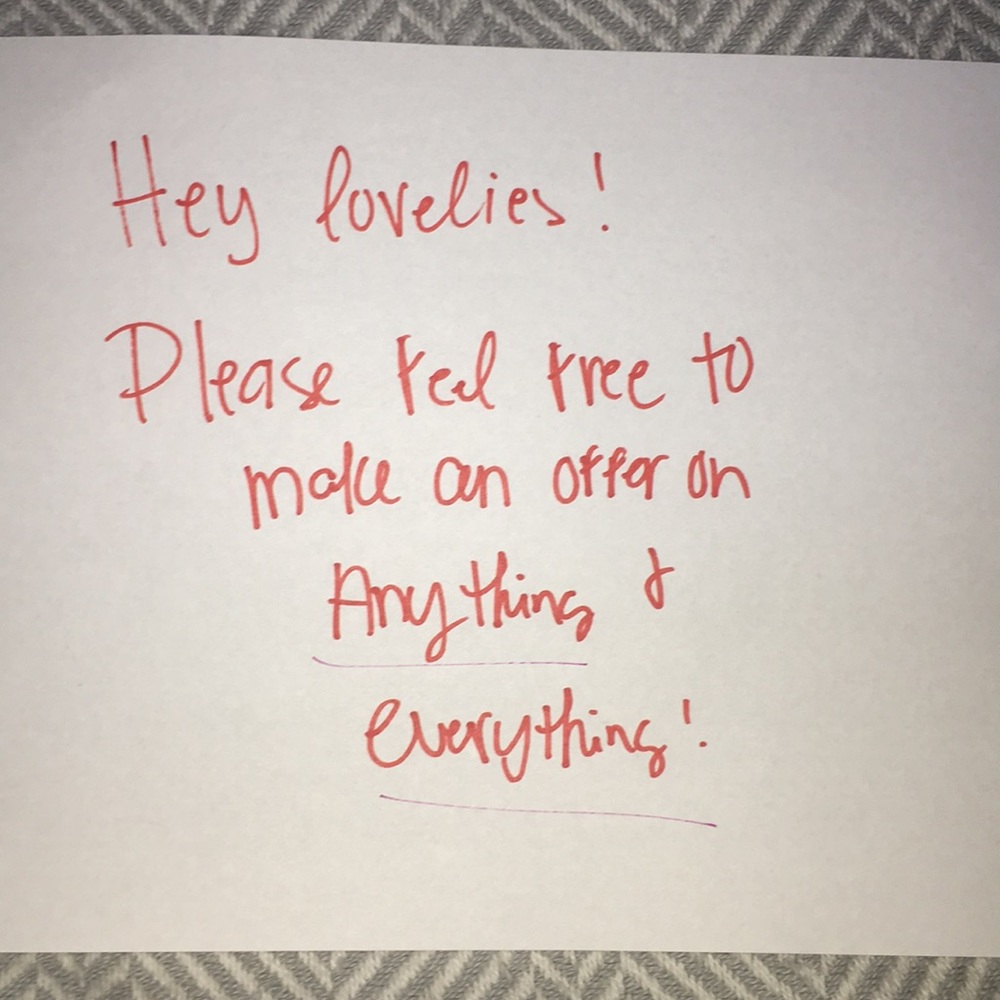 Hey lovelies!
Please feel free to
make an offer on
Anything &
everything!